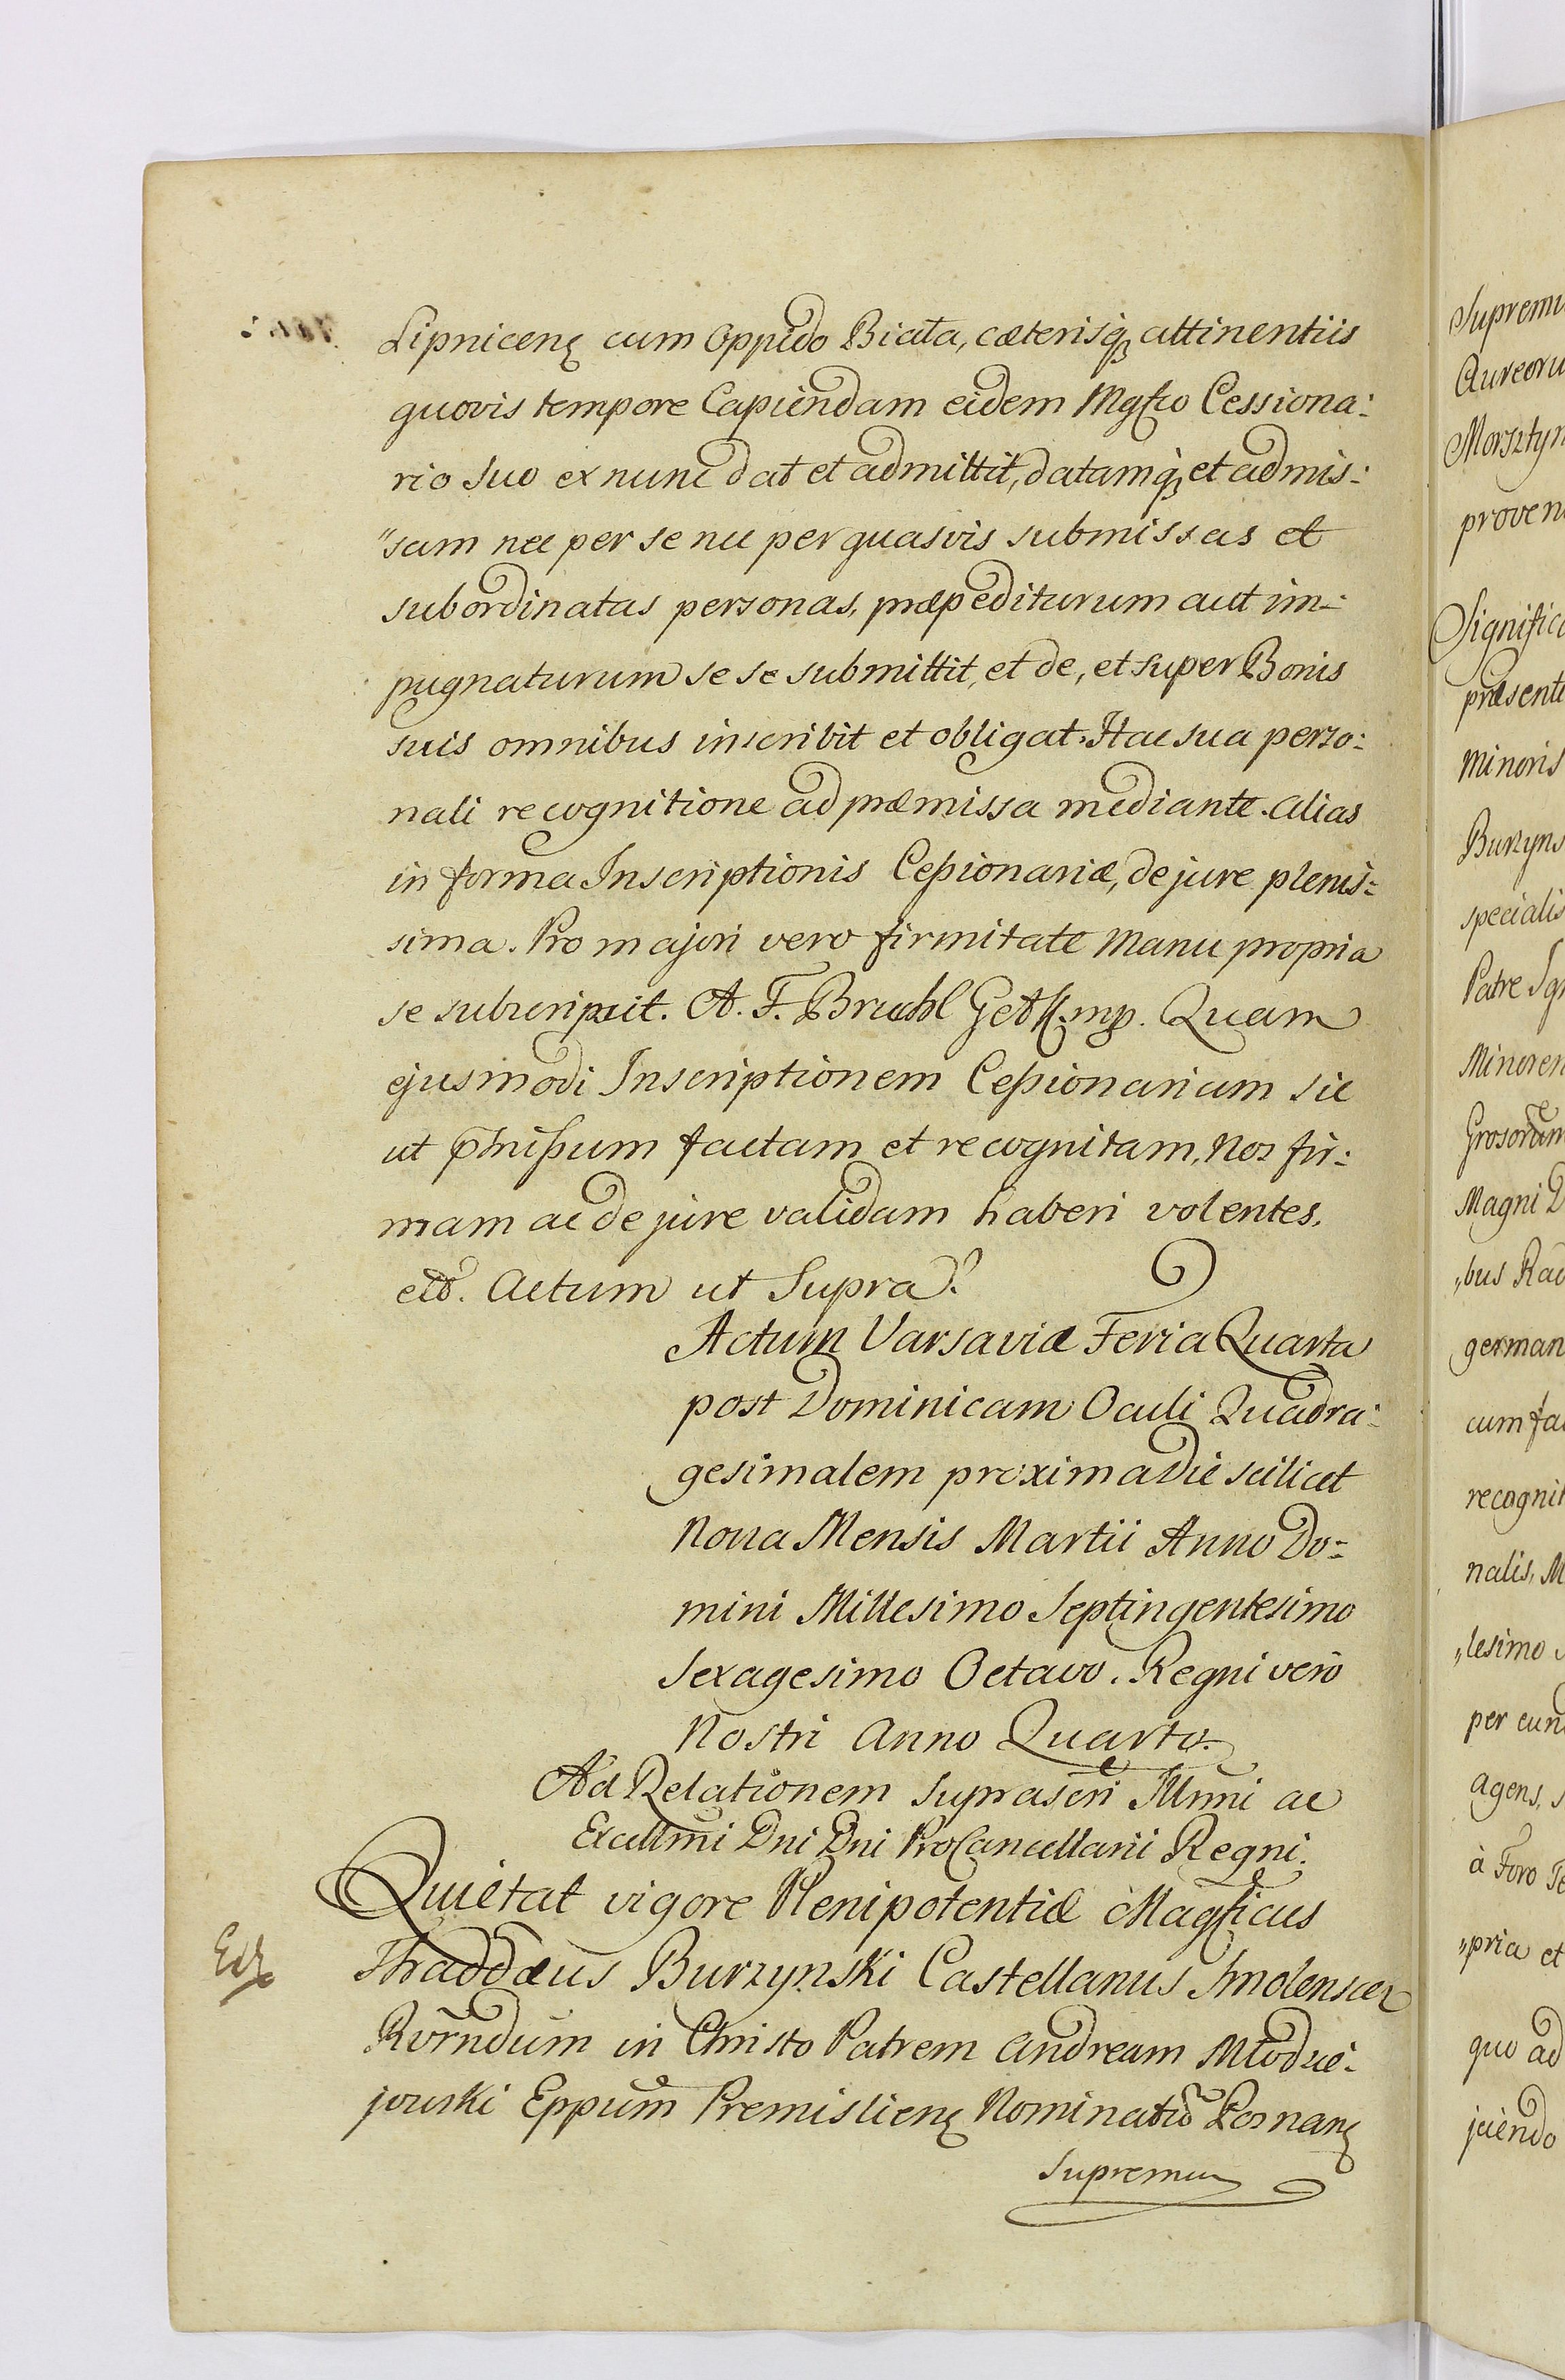 Lipnicenꝭ cum Oppido Biała, cæterisqꝫ attinentiis
quovis tempore Capiendam eidem Mgfco Cessiona:
rio suo ex nunc dat et admittit, datamqꝫ et admis:
"sam nec per se nec per quasvis submissas et
subordinatas personas, præpediturum aut im-:
pugnaturum se se submittit, et de, et super Bonis
suis omnibus inscribit et obligat. Hac sua perso:
nali recognitione ad præmissa mediante. alias
in forma Inscriptionis Cessionariæ, de jure plenis:
sima. Pro majori vero firmitate Manu propria
se subscripsit. A. F. Bruhl mp. Quam
ejusmodi Inscriptionem Cessionariam sic
ut factam et recognitam, Nos fir:
mam ac de jure validam haberi volentes.
etc. Actum ut Supra.
Actum Varsaviæ Feria Quarta
post Dominicam Oculi Quadra:
gesimalem proxima Die scilicet
Nona Mensis Martii Anno Do:
mini Millesimo Septingentesimo
Sexagesimo Octavo. Regni vero
Nostri Anno Quarto.
Ad Relationem suprascri Illmi ac
Excellmi Dni Dni ProCancellarii Regni.
Quietat vigore Plenipotentiæ Magficus
Thaddæus Burzynski Castellanus Smolenscen
Rvrndum in Christo Patrem Andream Młodzie:
jowski Eppum Premisliensꝭ Nominatũ Posnanꝭ
Supremum
Supremu
Aureoru
Morsztyn
proven
Significa
præsente
Minoris
Burzyns
specialis
Patre Ign
Minoren
Grosorum
Magni D
"bus Rad
german
cum fa
recognit
nalis, M
"lesimo
per eun
agens, s
à Foro Te
"pria et
quo ad
jiciendo